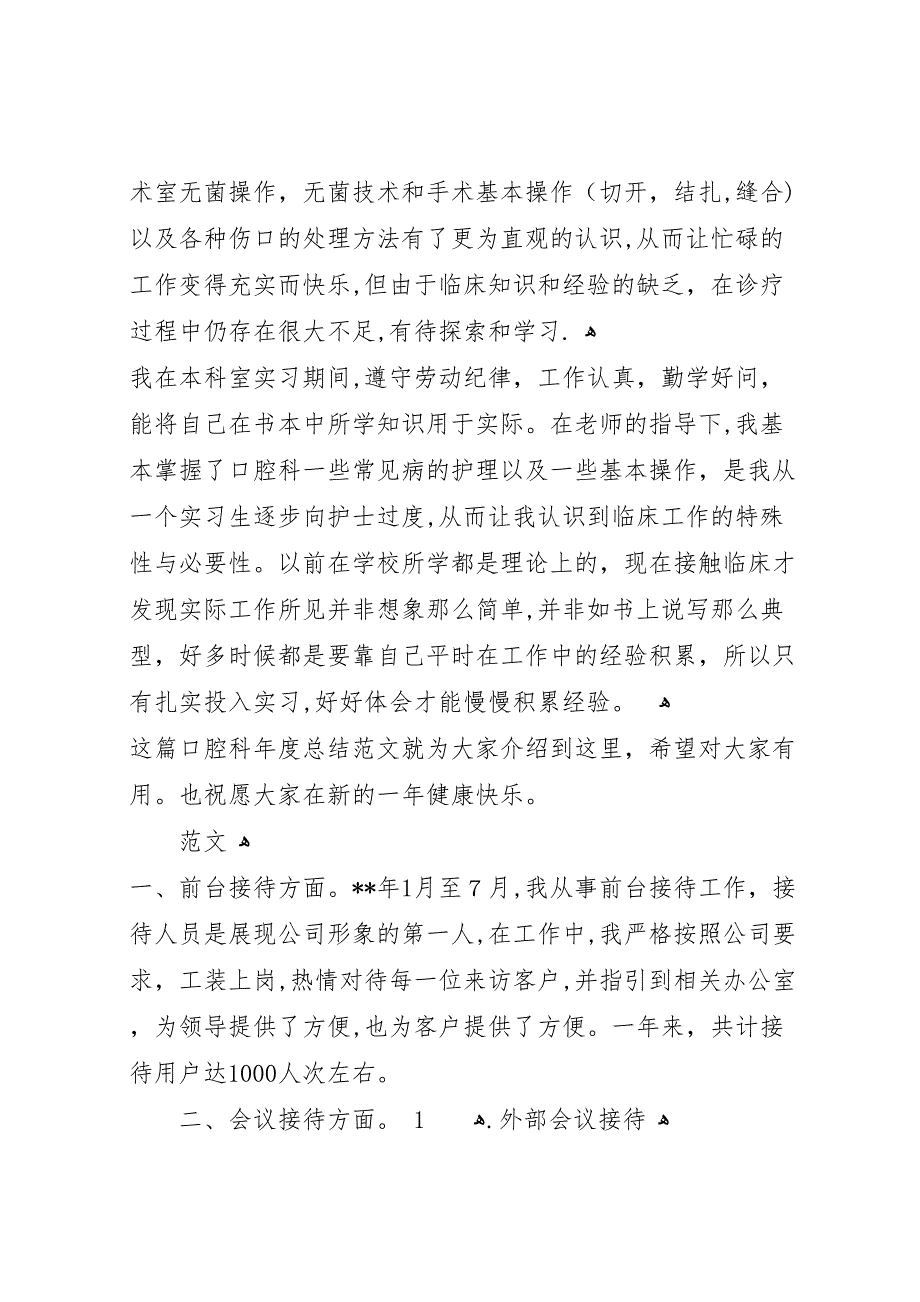 术室无菌操作，无菌技术和手术基本操作（切开，结扎,缝合)
以及各种伤口的处理方法有了更为直观的认识,从而让忙碌的
工作变得充实而快乐,但由于临床知识和经验的缺乏，在诊疗
过程中仍存在很大不足,有待探索和学习. ﻫ
我在本科室实习期间,遵守劳动纪律，工作认真，勤学好问，
能将自己在书本中所学知识用于实际。在老师的指导下,我基
本掌握了口腔科一些常见病的护理以及一些基本操作，是我从
一个实习生逐步向护士过度,从而让我认识到临床工作的特殊
性与必要性。以前在学校所学都是理论上的，现在接触临床才
发现实际工作所见并非想象那么简单,并非如书上说写那么典
型，好多时候都是要靠自己平时在工作中的经验积累，所以只
有扎实投入实习,好好体会才能慢慢积累经验。 ﻫ
这篇口腔科年度总结范文就为大家介绍到这里，希望对大家有
用。也祝愿大家在新的一年健康快乐。
范文 ﻫ
一、前台接待方面。**年1月至７月,我从事前台接待工作，接
待人员是展现公司形象的第一人,在工作中,我严格按照公司要
求，工装上岗,热情对待每一位来访客户,并指引到相关办公室
，为领导提供了方便,也为客户提供了方便。一年来，共计接
待用户达1000人次左右。
二、会议接待方面。 1 ﻫ.外部会议接待 ﻫ